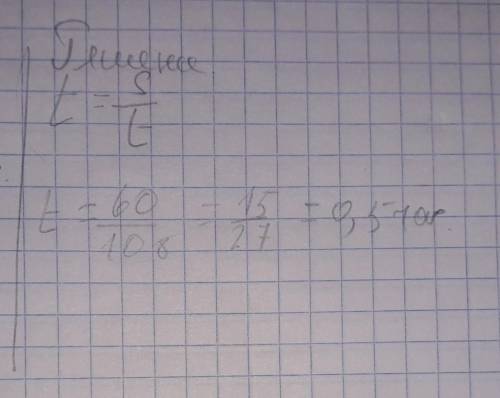 Решение
t = S/t
t = 60/108 = 15/27 = 0,5 час.